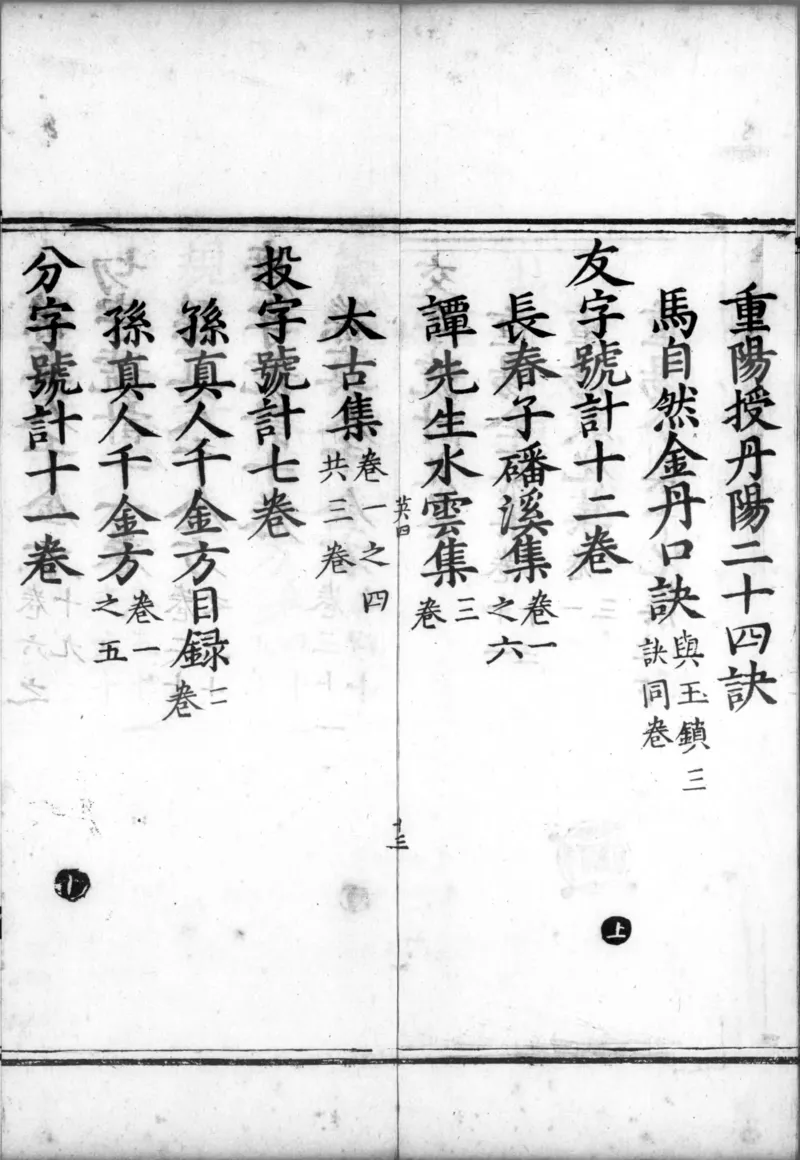 重陽授丹陽二十四訣
馬自然金丹口訣與玉鎖三訣同卷
友字號計十二卷
長春子磻溪集卷一之六
譚先生水雲集三卷
英四
十三
太古集卷一之四共三卷
投字號計七卷
孫真人千金方目録二卷
孫真人千金方卷一之五
分字號計十一卷
上